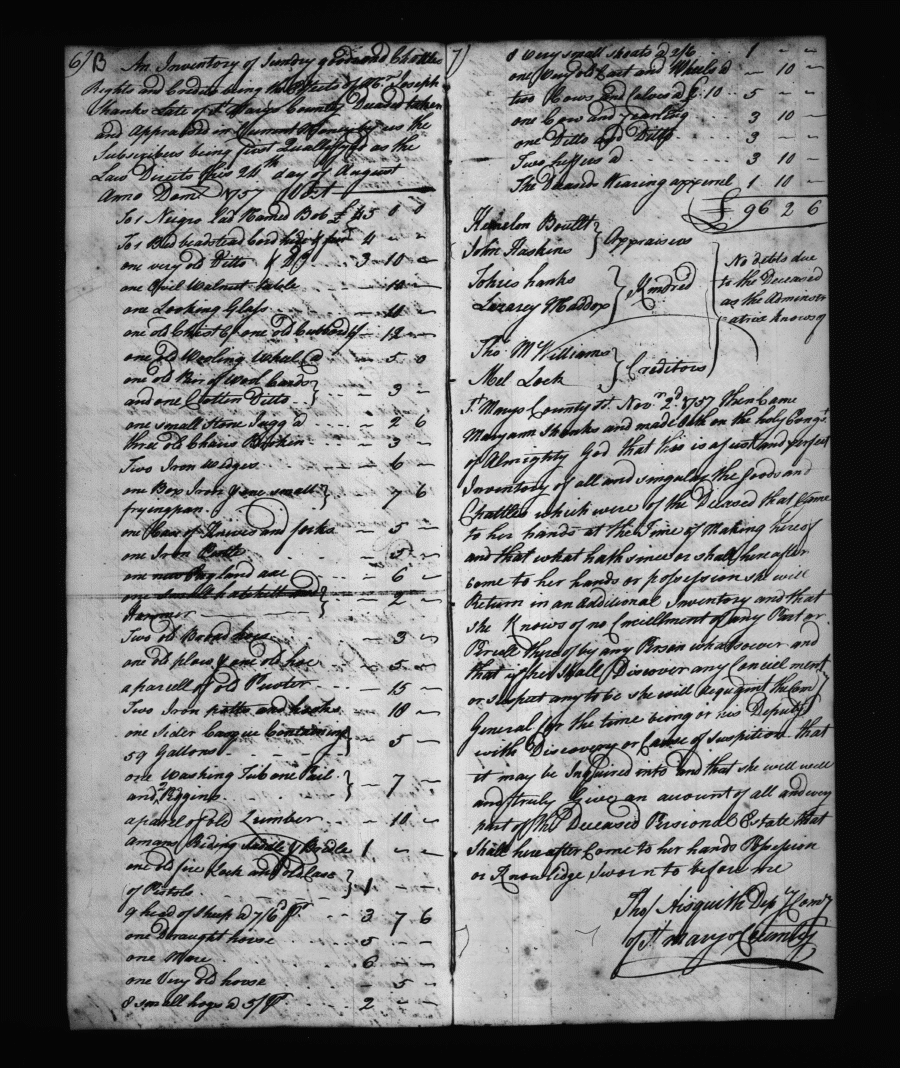 6) B An Inventory of Sundry goods and Chattles
Rights and Credits being the Effects of Mr. Joseph
Shanks Late of St. Marys County Deceased taken
and Appraised in Currant Money by us the
Subscribers being first Quallifyed as the
Law Directs this 24th day of August
Anno Dom 1757 Vizt
To 1 Negro Lad Named Bob £ 45 0 0
To 1 Bed beadstead Cord hide & furn 4 - -
one very old Ditto 3 - 10 -
one Small Walnut table - 10 -
one Looking Glass - 4 -
one old Chest & one old Cubbord - 12 -
one old Wooling Wheel a - 5 0
one old Pair of Wool Cards
and one Cotten Ditto - 3 -
one small Stone Jugg a - 2 6
three old Chairs - 3 -
Two Iron Wedges - 6 -
one Box Iron & one small
fryingpan - 7 6
one Case of Knives and forks - 5 -
one Iron - 5 -
one new England axe - 6 -
one Small hatchett and
Hammer - 2 -
Two old Broad hoes - 3 -
one old plow & one old hoe - 5 -
a parcell of old Pewter - 15 -
Two Iron potts and hooks - 10 -
one Sider Casque Containing
59 Gallons - 5 -
one Washing Tub one Pail
and 2 Piggins - 7 -
a parcel of old Lumber - 10 -
a mans Riding Saddle & Bridle 1 - -
one old fire Lock and old Case
of Pistols 1 - -
9 head of Sheep a 7/6 pr 3 7 6
one Draught horse 5 - -
one Mare 6 - -
one Very old horse - 5 -
8 small hogs a 5/ pr 2 - -
7)
8 Very small shoats a 2/6 1 - -
one Very old Cart and Wheels a - 10 -
two Cows and Calves a £ 2.. 10 5 - -
one Cow and Yearling 3 10 -
one Ditto and Ditto 3 - -
Two heffers a 3 10 -
The Deceased Wearing apparel 1 10 -
£ 96 2 6
John Haskins } Appraisers
hanks
Maddox } Kindred
No debts due
to the Deceased
as the Adminstr
atrix knows of
Tho. McWilliams
Mel Lock } Creditors
St. Marys County St. Novr. 2d 1757 Then Came
Maryann Shanks and made Oath on the holy Evangs
of Almighty God that this is a just and perfect
Inventory of all and singular the goods and
Chattles which were of the Deceased that Came
to her hands at the Time of Making hereof
and that what hath since or shall hereafter
come to her hands or possession she will
Return in an Additional Inventory and that
she Knows of no Concillment of any Part or
Percell thereof by any Person whatsoever and
that if her Shall Discover any Concilement
or suspect any to be she will Acquaint the Com
General for the time being or his Deputy
with Discovery or Cause of Suspition that
it may be Inquired into and that she will well
and truly Give an account of all and every
part of the Deceased Personal Estate that
Shall hereafter Come to her hands Possession
or Knowledge Sworn to before me
Thos Aisquith Dep Comry
of St. Marys County